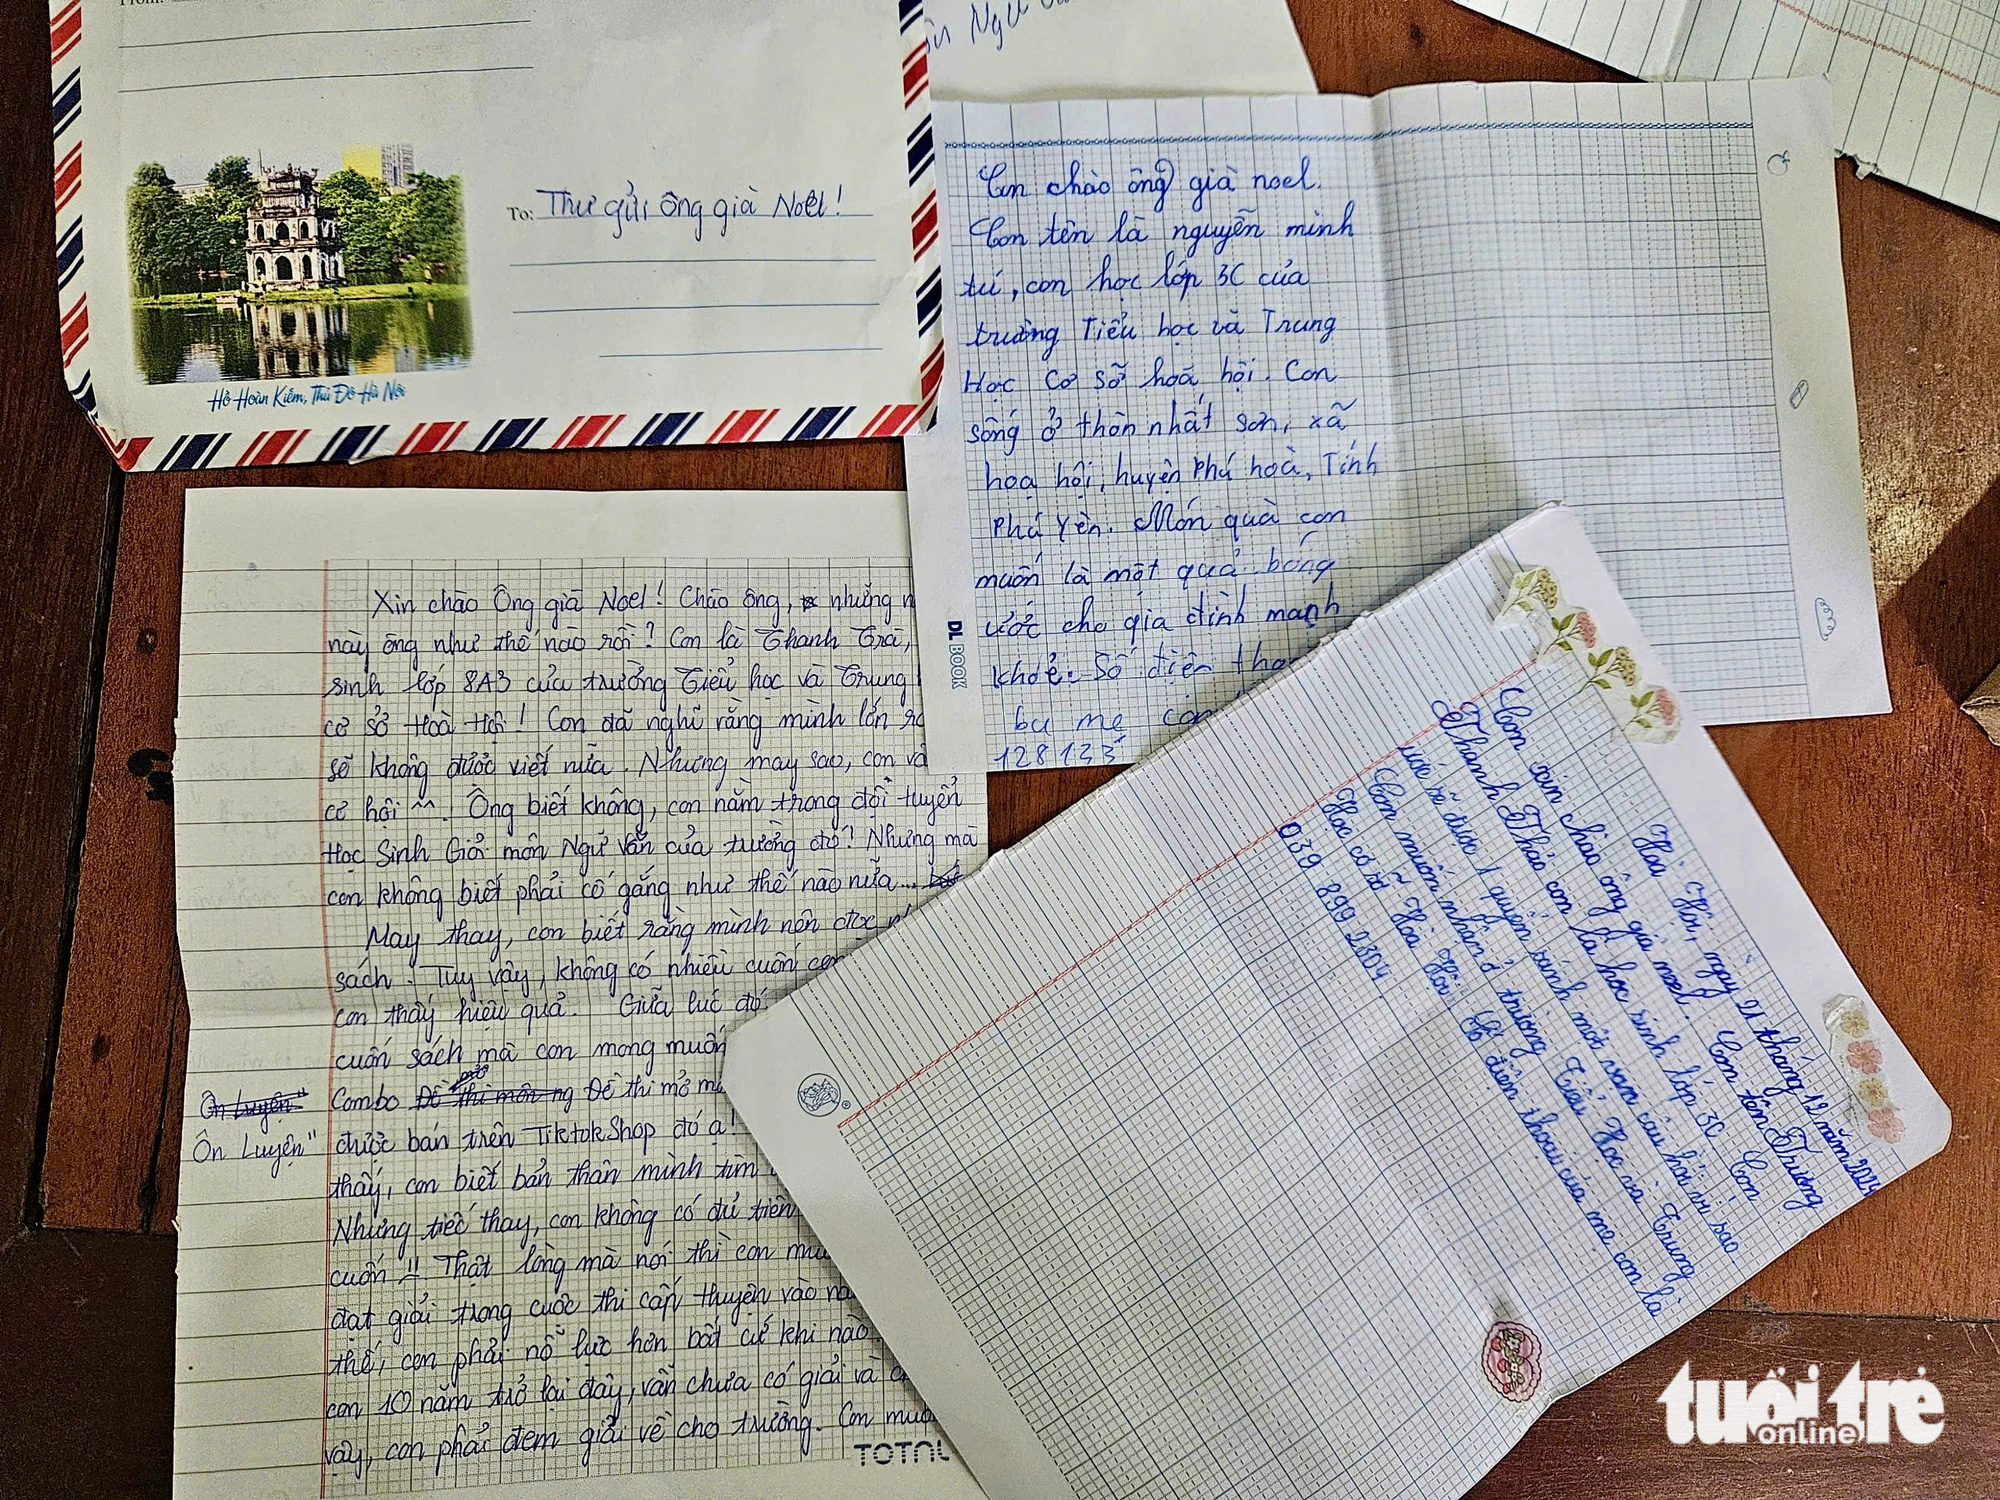 From:
To: Thư gửi ông già Noel!
Hồ Hoàn Kiếm, Thủ Đô Hà Nội
Con chào ông già noel.
Con tên là nguyễn minh
tú, con học lớp 3C của
trường Tiểu học và Trung
Học Cơ Sở hoà hội. Con
sống ở thôn nhất sơn, xã
hoà hội, huyện Phú hoà, Tỉnh
Phú Yên. Món quà con
muốn là một quả bóng
ước cho gia đình mạnh
khoẻ. Số điện tho
ba mẹ con
128133
DL BOOK
Xin chào Ông già Noel! Chào ông, những n
này ông như thế nào rồi? Con là Thanh Trà,
sinh lớp 8A3 của trường Tiểu học và Trung
cơ sở Hoà Hội! Con đã nghĩ rằng mình lớn rồ
sẽ không được viết nữa. Nhưng may sao, con vẫ
cơ hội ^^. Ông biết không, con nằm trong đội tuyển
Học Sinh Giỏi môn Ngữ Văn của trường đó! Nhưng mà
con không biết phải cố gắng như thế nào nữa...
May thay, con biết rằng mình nên đọc nh
sách. Tuy vậy, không có nhiều cuốn con
con thấy hiệu quả. Giữa lúc đó
cuốn sách mà con mong muốn
Combo Đề thi mở m
Ôn Luyện" được bán trên TiktokShop đó ạ!
thấy, con biết bản thân mình tìm
Nhưng tiếc thay, con không có đủ tiền
cuốn !! Thật lòng mà nói thì con mu
đạt giải trong cuộc thi cấp huyện vào nă
thế, con phải nỗ lực hơn bất cứ khi nào
con 10 năm trở lại đây, vẫn chưa có giải và c
vậy, con phải đem giải về cho trường. Con muố
TOTAL
Hoà Hội, ngày 21 tháng 12 năm 2024
Con xin chào ông già noel. Con tên Trương
Thanh Thảo con là học sinh lớp 3C Con
ước sẽ được 1 quyển sách mới vạn câu hỏi vì sao
Con muốn nhận ở trường Tiểu Học và Trung
Học cơ sở Hoà Hội. Số điện thoại của mẹ con là
039 899 2804
tuổi trẻ
online